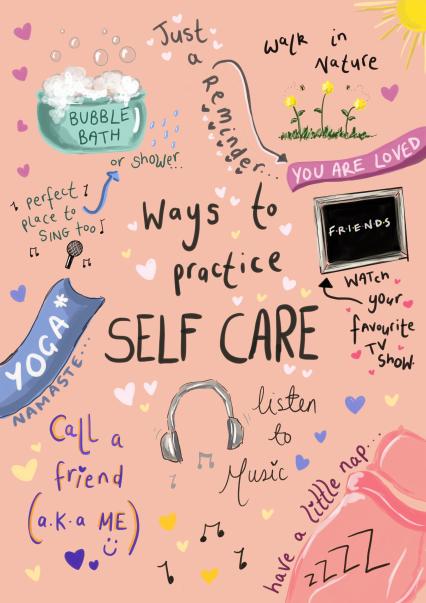 Just
a
Reminder...
YOU ARE LOVED
walk in
Nature
BUBBLE
BATH
or shower...
perfect
place to
SING too
Ways to
practice
SELF CARE
F·R·I·E·N·D·S
WATCH
your
favourite
TV
SHOW.
YOGA*
NAMASTE...
listen
to
Music
Call a
friend
(a.k.a ME)
have a little nap...
zzzZ